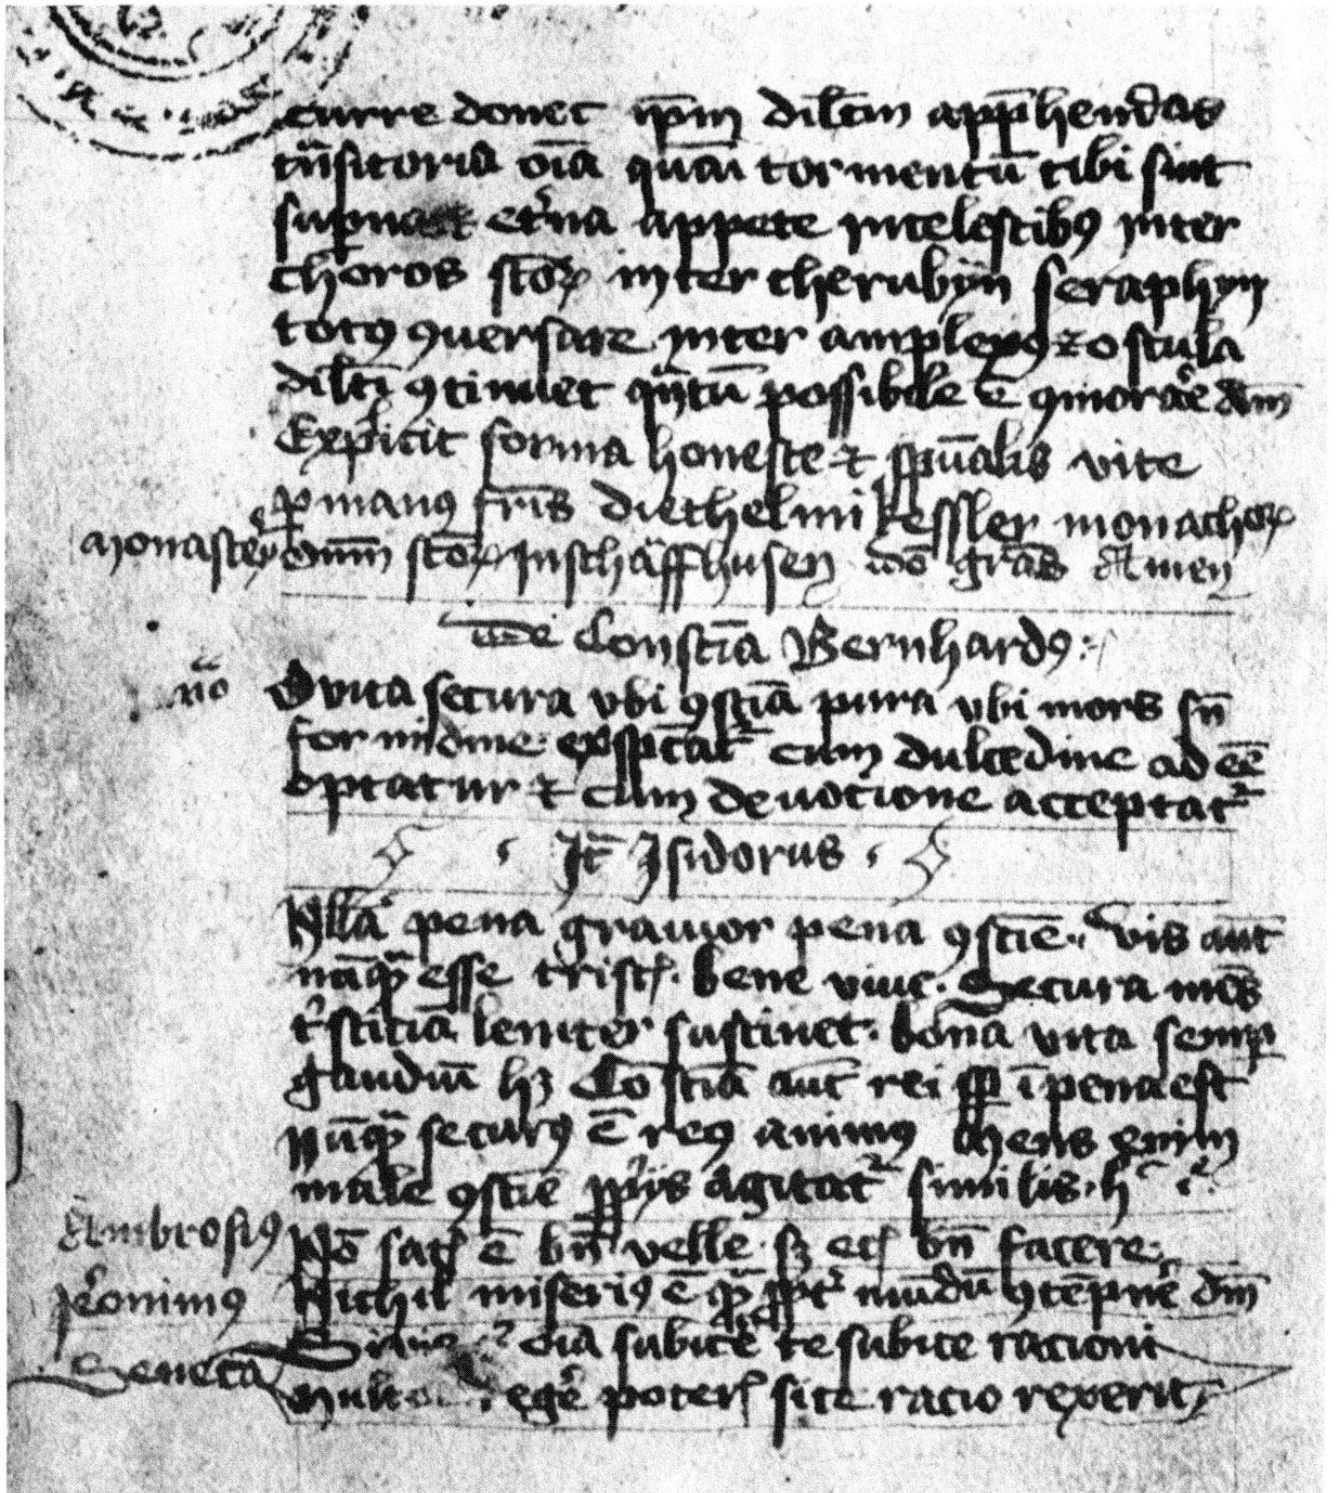 curre donec ip̄m dil̄tm app̄hendas
tn̄sitoria oīa qm̄ tormentū tibi sint
et̄na appete in celestibꝰ inter
choros sc̄oꝝ inter cherubyn seraphyn
totꝰ ꝯuersare inter amplexꝰ ⁊ oscula
dil̄ti ꝯtinuet possibile ē ꝯmorare
Explicit forma honeste ⁊ sp̄ualis vite
ꝑ manꝰ fr̄is diethelmi kessler monachoꝝ
monasterij om̄ sc̄oꝝ In schäffhusen dō grās Amen
De Consc̄ia Bernhardꝰ
nō O vita secura vbi ꝯsc̄ia pura vbi mors sn̄
formidine exspc̄at᷑ cum dulcedine ad eē
optatur ⁊ cum deuotione acceptat᷑
It̄ Isidorus
Nulla pena grauior pena ꝯsc̄ie. vis aut̄
nūqꝫ esse tristꝭ. bene viue. Secura mēs
tͥsticiā leuiter sustinet. bona vita semꝑ
gaudiū hꝫ Cosc̄ia aut̄ rei sꝑ ī pena est
nūqꝫ securꝰ ē reꝰ animꝰ Mens enim
male ꝯsc̄ie ꝓprijs agitat᷑ similis
Ambrosiꝰ Nō satꝭ ē bn̄ velle. sꝫ ecꝭ bn̄ facere.
Jeronimꝰ Nichil miseriꝰ ē qͣ ꝓpt᷑ mūdū ꝯtēpnē dm̄
Seneca oīa subicē te subice racioni
egē poterꝭ si te racio rexerit